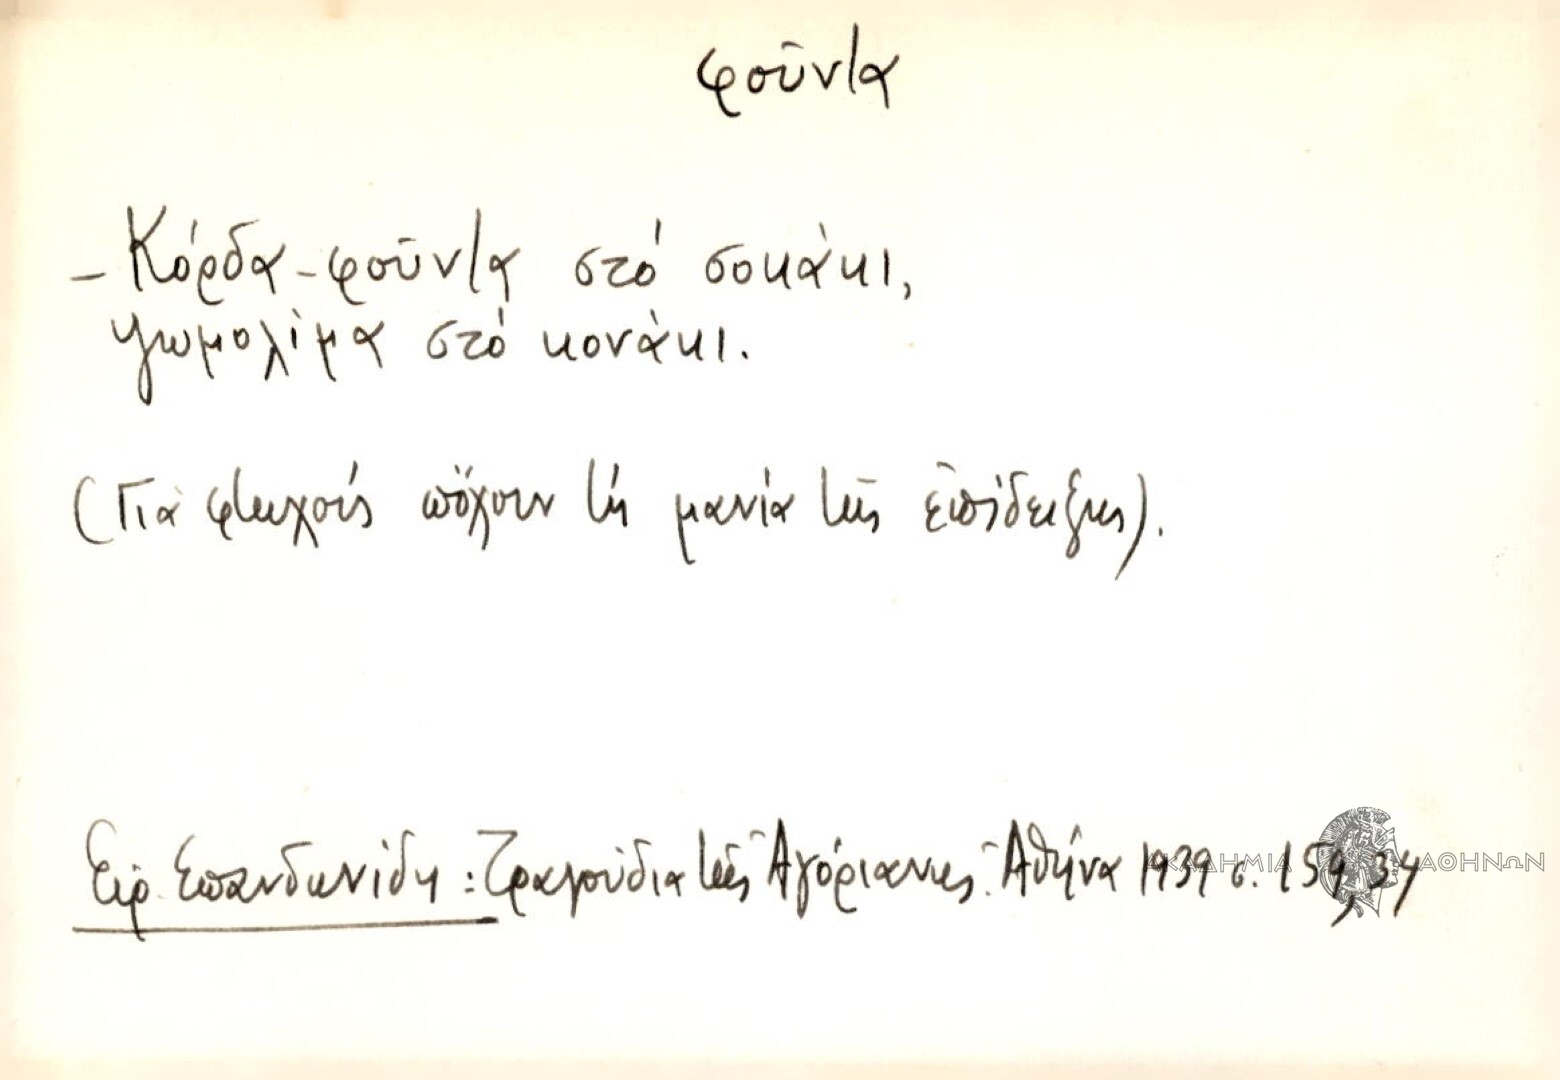 φοῦντα
– Κόρδα - φοῦντα στό σοκάκι,
ψωμολίμα στό κονάκι.
(Γιά φτωχούς πὄχουν τή μανία τῆς ἐπίδειξης).
Εἰρ. Σπανδωνίδη: Τραγούδια τῆς Ἀγόριανης. Ἀθήνα 1939 σ. 159, 34
ΑΚΑΔΗΜΙΑ ΑΘΗΝΩΝ